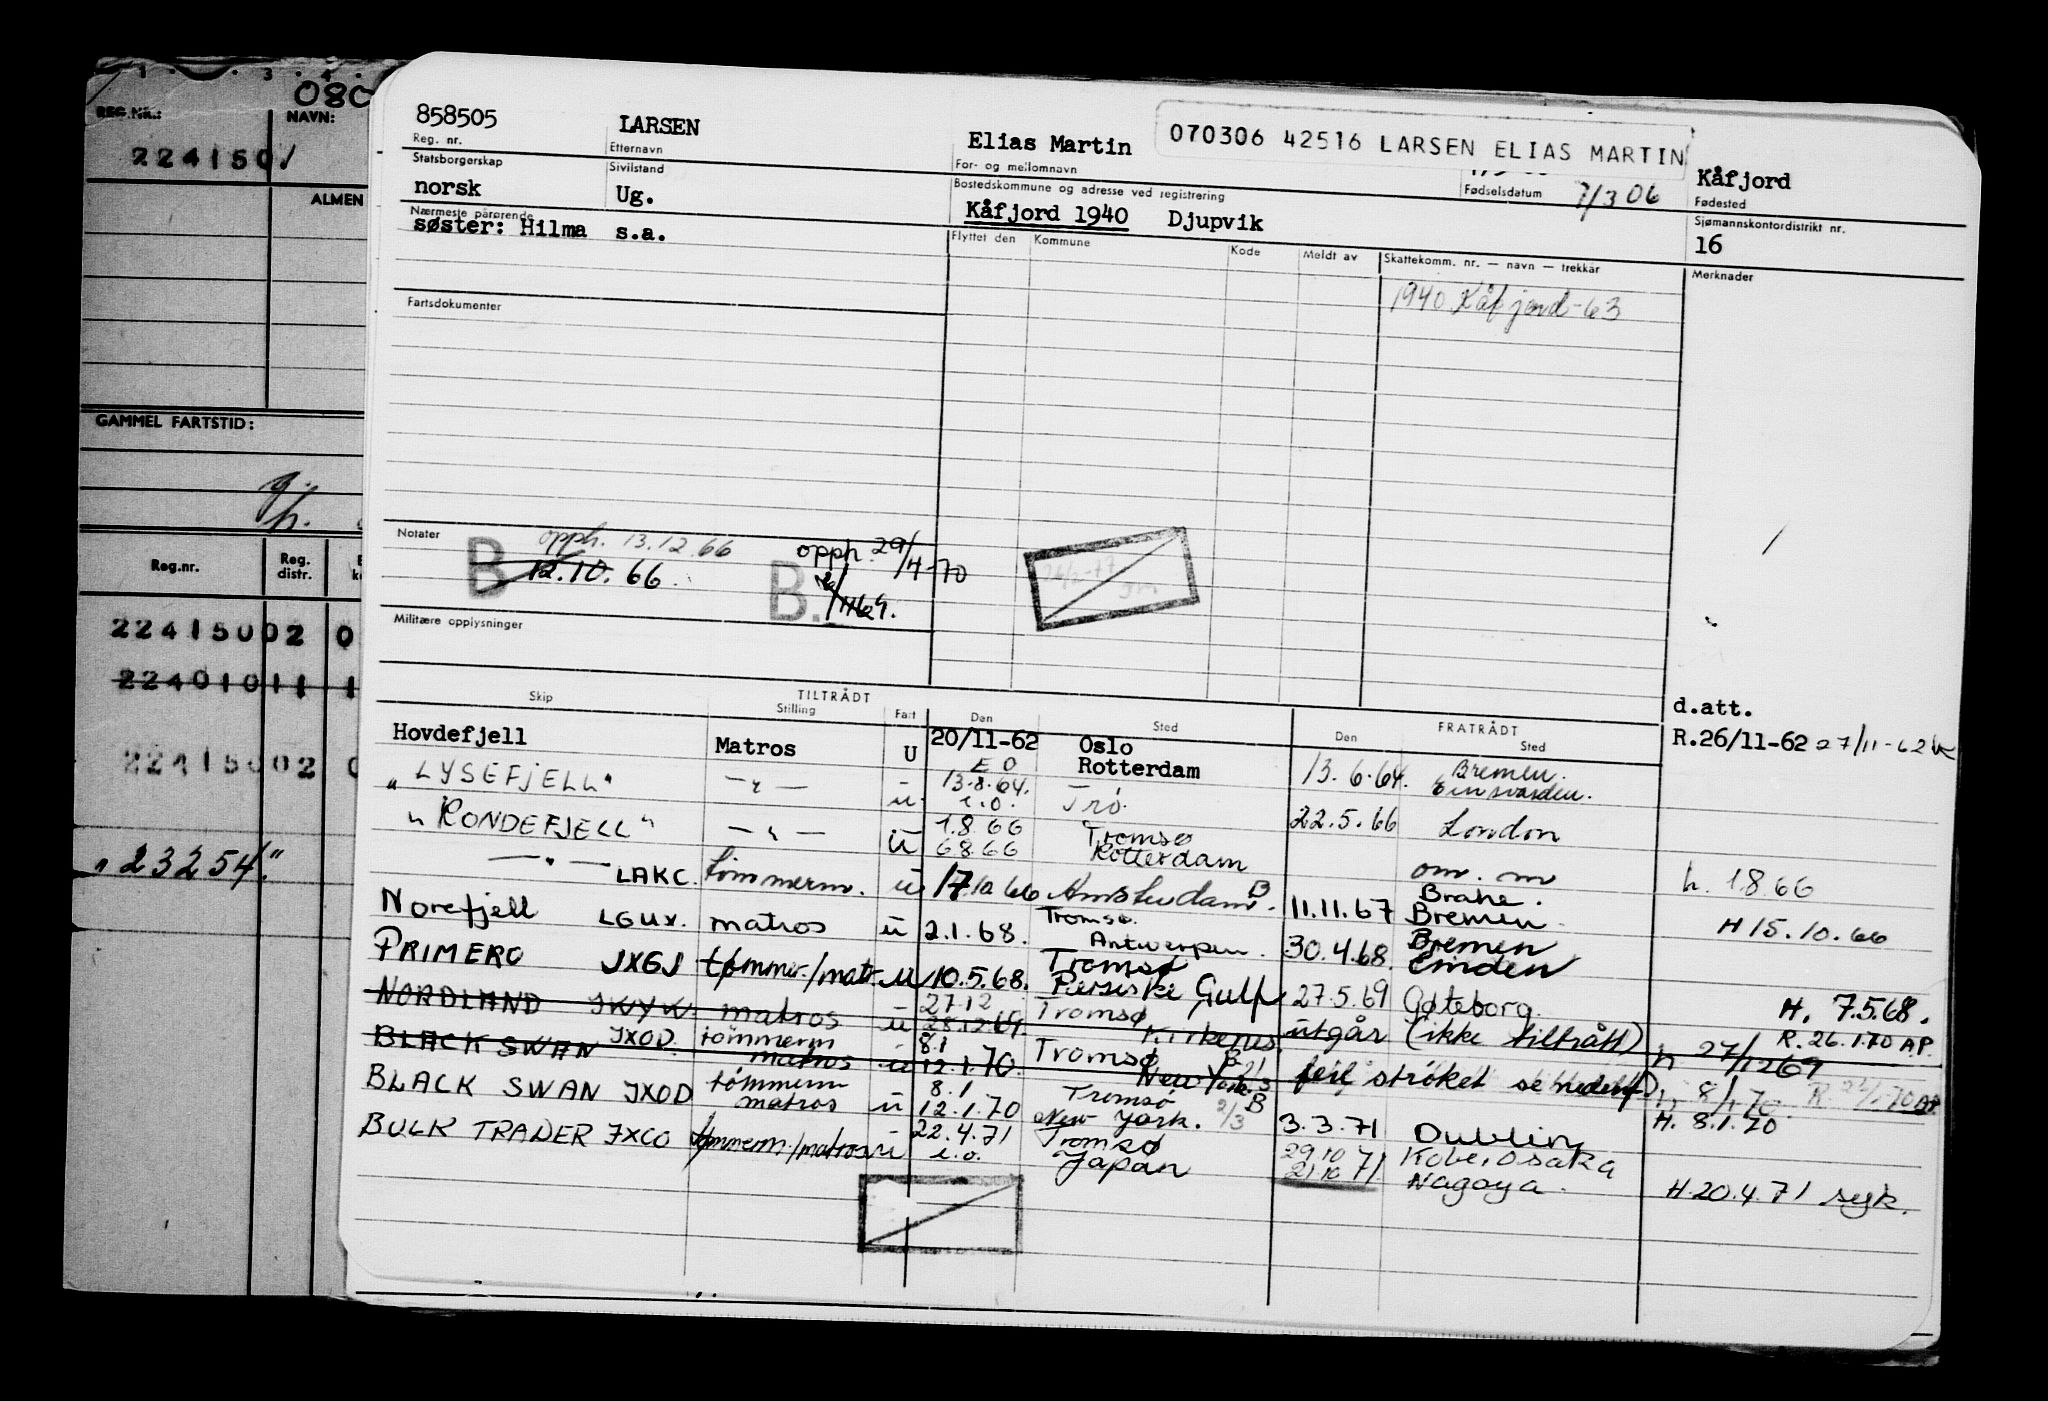 080
REG.NR.: NAVN:
2241501
ALMEN
GAMMEL FARTSTID:
Reg.nr. Reg. distr.
22415002 0
22401011 1
22415002 0
"23254"
858505 LARSEN Elias Martin 070306 42516 LARSEN ELIAS MARTIN
Reg. nr. Etternavn For- og mellomnavn Fødselsdatum 7/3 06 Kåfjord
Fødested
Statsborgerskap Sivilstand Bostedskommune og adresse ved registrering
norsk Ug. Kåfjord 1940 Djupvik
Sjømannskontordistrikt nr.
16
Nærmeste pårørende
søster: Hilma s.a.
Flyttet den Kommune Kode Meldt av Skattekomm. nr. — navn — trekkår Merknader
1940 Kåfjord-63
Fartsdokumenter
Notater
opph. 13.12.66
B 12.10.66
opph. 29/4-70
B.
Militære opplysninger
TILTRÅDT FRATRÅDT
Skip Stilling Fart Den Sted Den Sted
d.att.
Hovdefjell Matros U 20/11-62 Oslo R.26/11-62 27/11-62
E O Rotterdam 13.6.64. Bremen.
"LYSEFJELL" — " — u 13.8.64. Trø.
i.o. 22.5.66 London
"RONDEFJELL" — " — u 1.8.66 Tromsø
6866 Rotterdam om. m h. 1.8.66
— " — LAKC. tømmerm. u 17 10 66 Amsterdam B. 11.11.67 Brake. Bremen. H 15.10.66
Norefjell LGUX. matros u 2.1.68. Tromsø. Antwerpen. 30.4.68. Bremen Emden
PRIMERO JXGJ tømmer./matr. u 10.5.68. Tromsø Persiske Gulf 27.5.69 Gøteborg. H. 7.5.68.
NORDLAND JWYW matros u 27.12 28.12.69. Tromsø Kirkenes. utgår (ikke tiltrått) h 27/12 69 R. 26.1.70 A.P.
BLACK SWAN JXOD. tømmerm matros u 8.1 12.1.70. Tromsø New York. feil strøket se nedenf) h 8/1 70
BLACK SWAN JXOD tømmerm matros u 8.1 12.1.70 Tromsø New York. 2/3 B 3.3.71 Dublin H. 8.1.70
BULK TRADER JXCO tømmerm./matros u 22.4.71 i.o. Tromsø Japan 29.10 21.10 71. Kobe, Osaka Nagoya. H.20.4.71 syk.